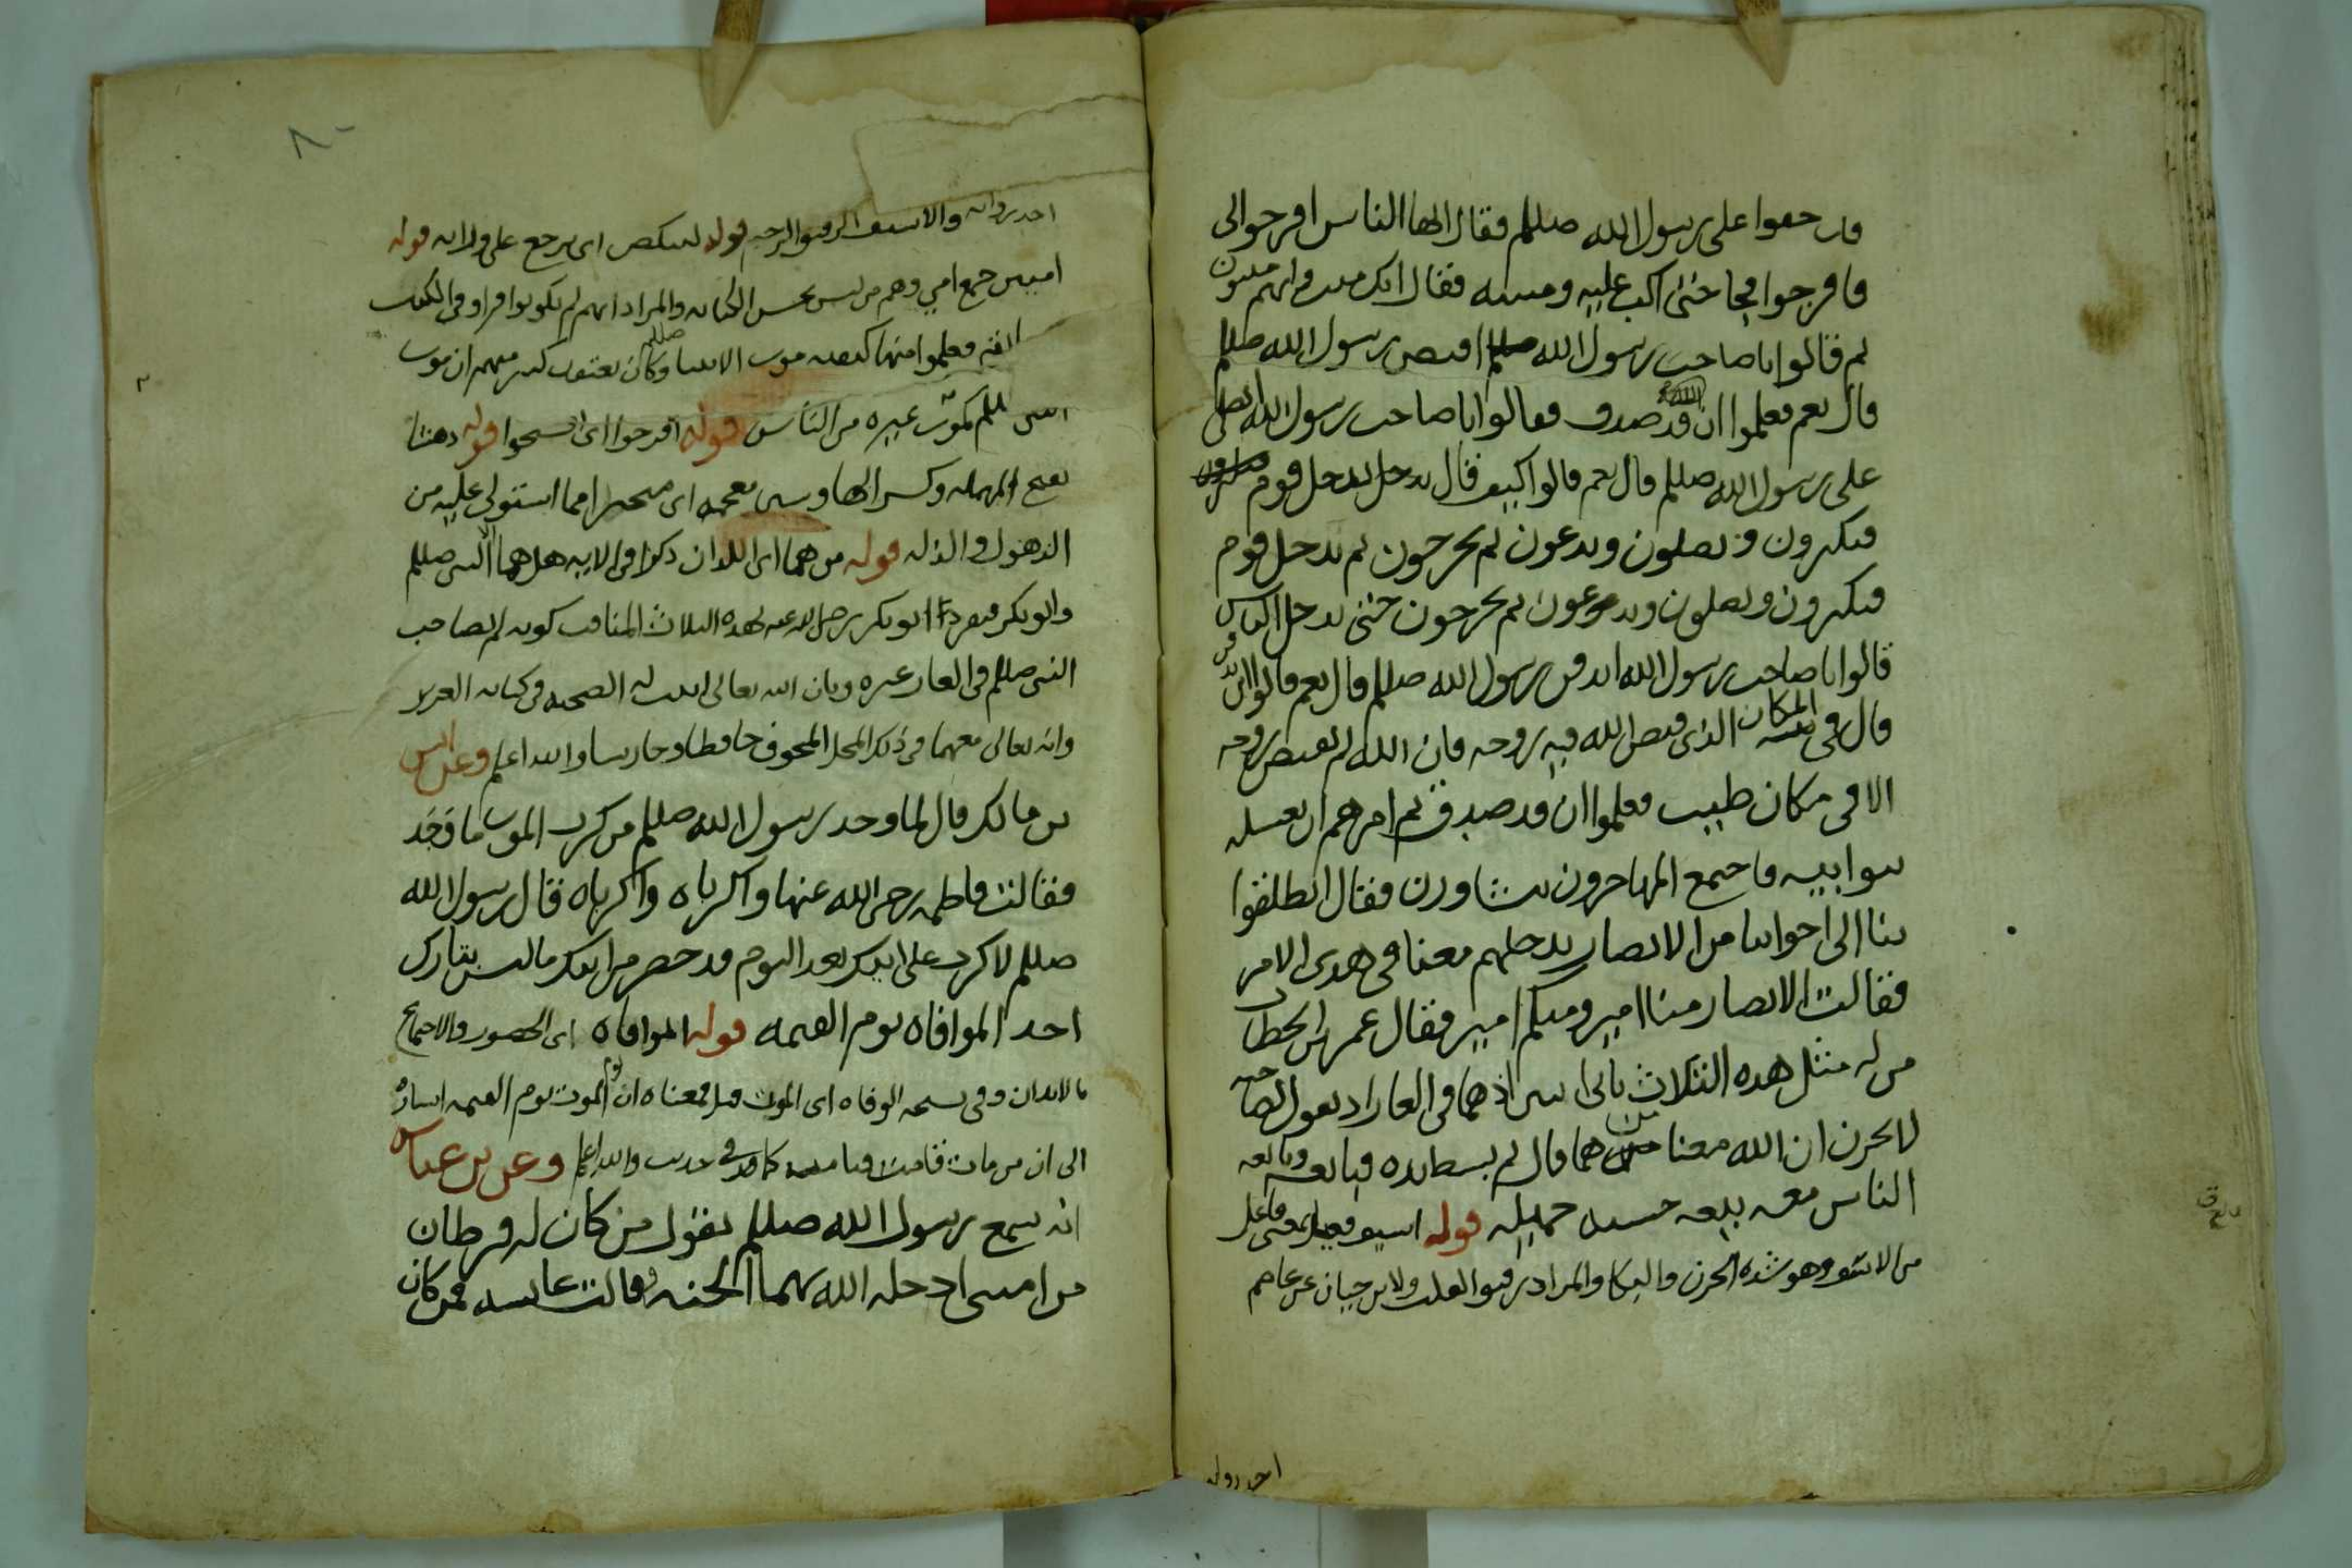 قد حفوا على رسول الله صللم فقال ايها الناس افرجوا لى
فافرجوا فجا حتى اكب عليه ومسه فقال انك ميت وانهم ميتون
ثم قالوا يا صاحب رسول الله صللم اقبض رسول الله صللم
قال نعم فعلموا ان قد صدق فقالوا يا صاحب رسول الله ايصلى
على رسول الله صللم قال نعم قالوا كيف قال يدخل قوم
فيكبرون ويصلون ويدعون ثم يخرجون ثم يدخل قوم
فيكبرون ويصلون ويدعون ثم يخرجون حتى يدخل الناس
قالوا يا صاحب رسول الله ايدفن رسول الله صللم قال نعم قالوا اين
قال فى المكان الذى قبض الله فيه روحه فان الله لم يقبض روحه
الا فى مكان طيب فعلموا ان قد صدق ثم امرهم ان يغسله
بنوا ابيه فاجتمع المهاجرون يتشاورن فقال انطلقوا
بنا الى اخواننا من الانصار ندخلهم معنا فى هدى الامر
فقالت الانصار منا امير ومنكم امير فقال عمر بن الخطاب
من له مثل هده الثلاث ثانى اثنين اذ هما فى الغار اذ يقول لصاحبه
لا تحزن ان الله معنا من هما قال ثم بسط يده فبايعه وبايعه
الناس معه بيعه حسنه جميله قوله اسيف فعيل بمعنى فاعل
من الاسف وهو شده الحزن والبكا والمراد رقيق القلب ولابن حبان عن عاصم
احد رواته
احد رواته والاسيف الرقيق الرحيم قوله لينكص اى يرجع على ورائه قوله
اميين جمع امي وهم من ليس يحسن الكتابه والمراد انهم لم يكونوا قراوا فى الكتب
فعلموا منها كيفيه موت الانبيا وكان يعتقد كثير منهم ان موت
النبى صللم كموت غيره من الناس قوله افرجوا اى افسحوا قوله دهشا
بفتح المهمله وكسر الها وشين معجمه اى متحيرا مما استولى عليه من
الذهول والذله قوله من هما اى اللدان دكرا فى الايه هل هما الا النبى صللم
وابو بكر فتفرد ابو بكر رضى الله عنه بهده الثلاث المناقب كونه لم يصاحب
النبى صللم فى الغار غيره وبان الله تعالى اثبت له الصحبه فى كتابه العزيز
وانه تعالى معهما فى ذلك المحل المخوف حافظا وحارسا والله اعلم وعن انس
بن مالك قال لما وجد رسول الله صللم من كرب الموت ما وجد
فقالت فاطمه رضى الله عنها واكرباه واكرباه قال رسول الله
صللم لا كرب على ابيك بعد اليوم قد حضر من ابيك ما ليس بتارك
احد الموافاه يوم القيمه قوله الموافاه اى الحضور والاجتماع
بالابدان وفى نسخه الوفاه اى الموت قبل فمعناه ان الموت يوم القيمه اشاره
الى ان من مات قامت قيامته كما ورد فى حديث والله اعلم وعن بن عباس
انه سمع رسول الله صللم يقول من كان له فرطان
من امتى ادخله الله بهما الجنه وقالت عايشه فمن كان